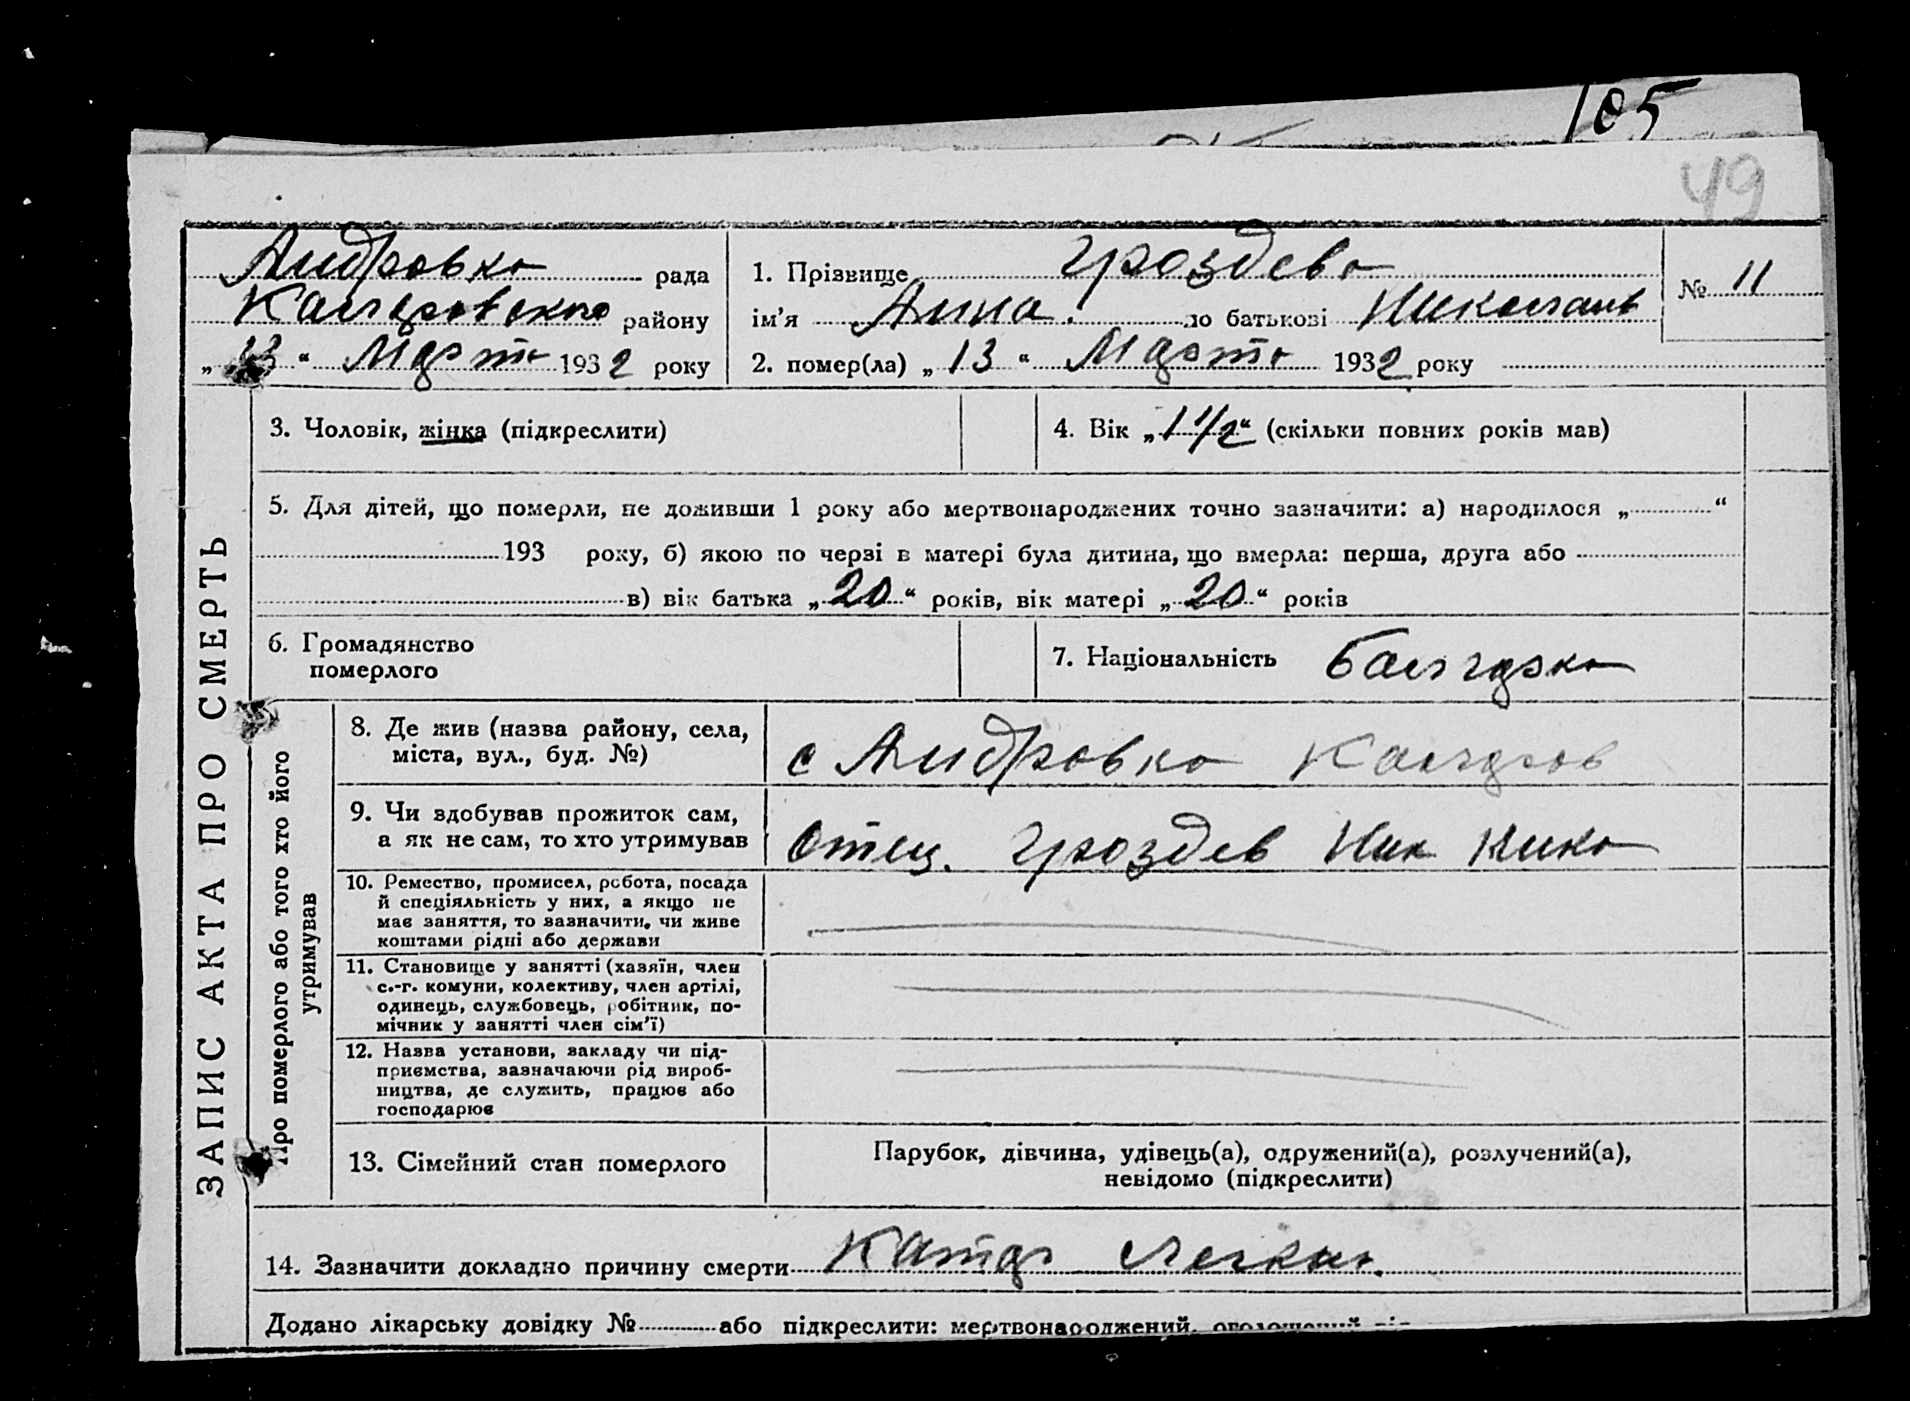 105
49
Андровка рада
Колгаровского району
„13“ Марта 1932 року
1. Прізвище Гроздева
ім’я Анна. по батькові Николаев
2. помер(ла) „13“ Марта 1932 року
№ 11
3. Чоловік, жінка (підкреслити)
4. Вік „1 1/2“ (скільки повних років мав)
5. Для дітей, що померли, не доживши 1 року або мертвонароджених точно зазначити: а) народилося „ “
193 року, б) якою по черзі в матері була дитина, що вмерла: перша, друга або
в) вік батька „20“ років, вік матері „20“ років
6. Громадянство
померлого
7. Національність болгарка
ЗАПИС АКТА ПРО СМЕРТЬ
Про померлого або того хто його
утримував
8. Де жив (назва району, села,
міста, вул., буд. №)
с Андровка
9. Чи здобував прожиток сам,
а як не сам, то хто утримував
Отец. Гроздев Ник
10. Ремество, промисел, робота, посада
й спеціяльність у них, а якщо не
має заняття, то зазначити, чи живе
коштами рідні або держави
11. Становище у занятті (хазяїн, член
с.-г. комуни, колективу, член артілі,
одинець, службовець, робітник, по-
мічник у занятті член сім’ї)
12. Назва установи, закладу чи під-
приємства, зазначаючи рід вироб-
ництва, де служить, працює або
господарює
13. Сімейний стан померлого
Парубок, дівчина, удівець(а), одружений(а), розлучений(а),
невідомо (підкреслити)
14. Зазначити докладно причину смерти Катар легких.
Додано лікарську довідку № або підкреслити: мертвонароджений,